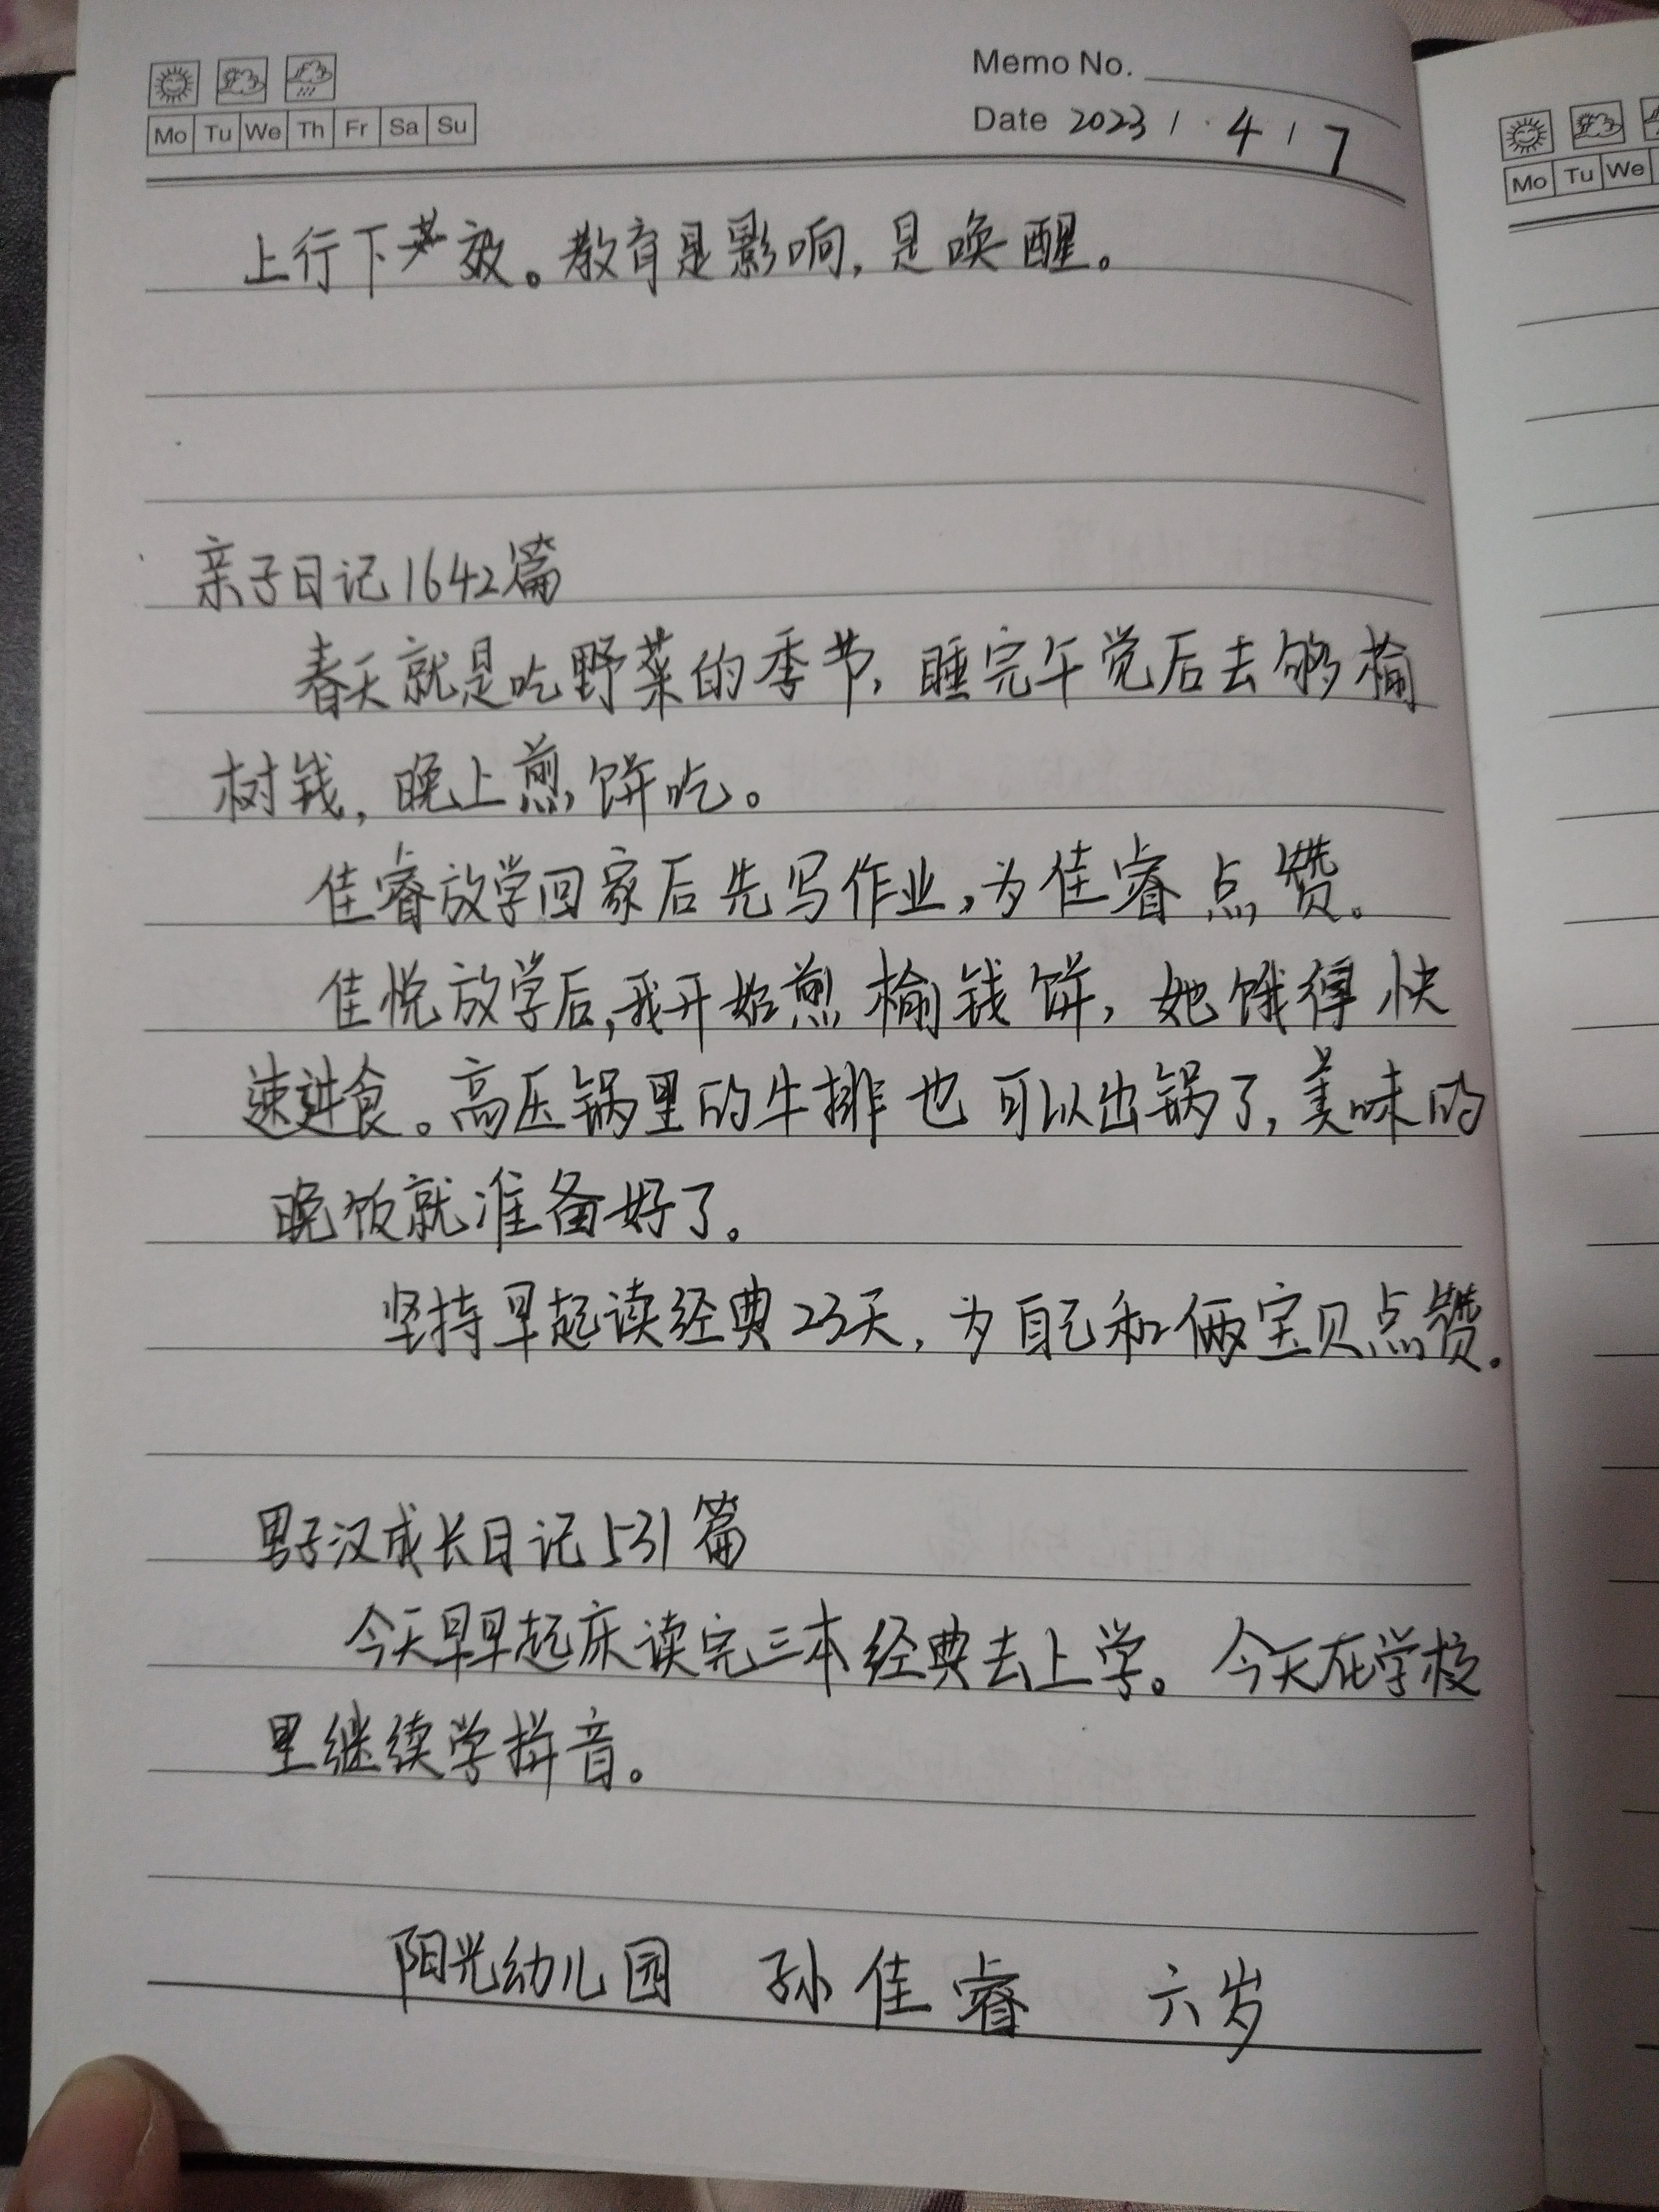 Memo No.
Mo Tu We Th Fr Sa Su
Date 2023 / 4 / 7
上行下效。教育是影响，是唤醒。
亲子日记1642篇
春天就是吃野菜的季节，睡完午觉后去够榆
树钱，晚上煎饼吃。
佳睿放学回家后先写作业，为佳睿点赞。
佳悦放学后，我开始煎榆钱饼，她饿得快
速进食。高压锅里的牛排也可以出锅了，美味的
晚饭就准备好了。
坚持早起读经典23天，为自己和俩宝贝点赞。
男子汉成长日记531篇
今天早早起床读完三本经典去上学。今天在学校
里继续学拼音。
阳光幼儿园 孙佳睿 六岁
Mo Tu We